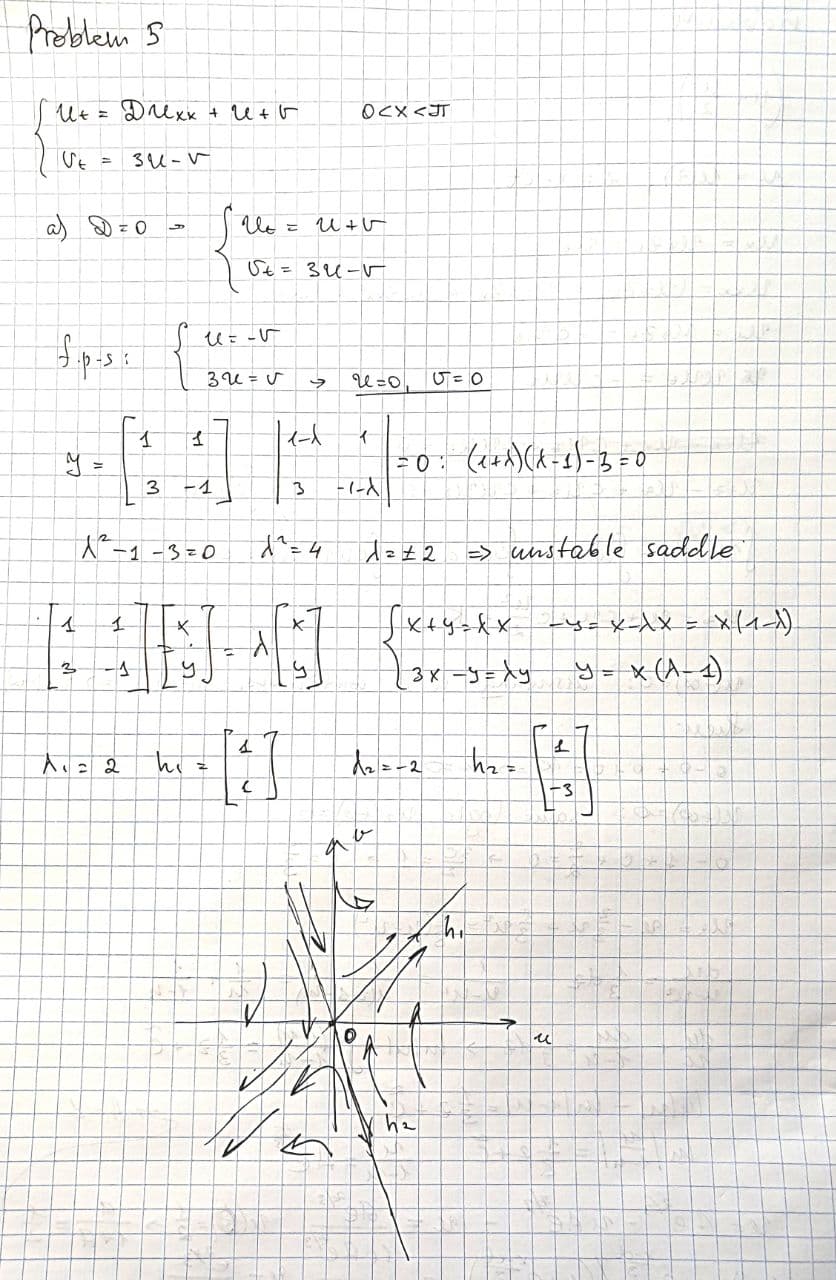 Problem 5
{ u_t = D u_xx + u + v      0<x<π
{ v_t = 3u - v
a) D=0 → { u_t = u+v
{ v_t = 3u-v
f.p-s: { u = -v
{ 3u = v → u=0, v=0
y = [1 1; 3 -1]   |1-λ 1; 3 -1-λ| = 0 : (1+λ)(λ-1)-3=0
λ²-1-3=0   λ²=4   λ=±2 ⇒ unstable saddle
[1 1; 3 -1][x; y] = λ[x; y]   { x+y=λx   -y = x-λx = x(1-λ)
{ 3x-y=λy   y = x(λ-1)
λ₁=2   h₁ = [1; 1]   λ₂=-2   h₂ = [1; -3]
v
h₁
0
u
h₂